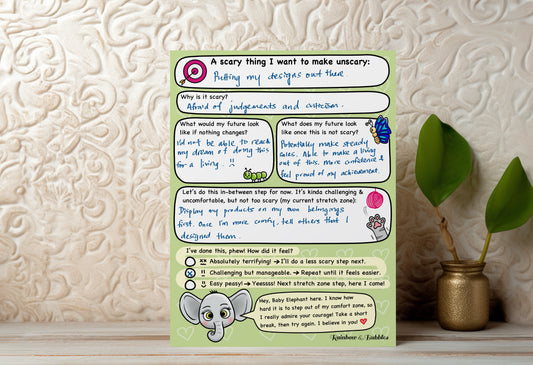 A scary thing I want to make unscary:
Putting my designs out there.
Why is it scary?
Afraid of judgements and criticism.
What would my future look
like if nothing changes?
I'd not be able to reach
my dream of doing this
for a living.
What does my future look
like once this is not scary?
Potentially make steady
sales. Able to make a living
out of this. More confidence &
feel proud of my achievement.
Let's do this in-between step for now. It's kinda challenging &
uncomfortable, but not too scary (my current stretch zone):
Display my products on my own belongings
first. Once I'm more comfy, tell others that I
designed them.
I've done this, phew! How did it feel?
Absolutely terrifying! → I'll do a less scary step next.
Challenging but manageable. → Repeat until it feels easier.
Easy peasy! → Yeessss! Next stretch zone step, here I come!
Hey, Baby Elephant here. I know how
hard it is to step out of my comfort zone, so
I really admire your courage! Take a short
break, then try again. I believe in you! ❤
Rainbow & Bubbles